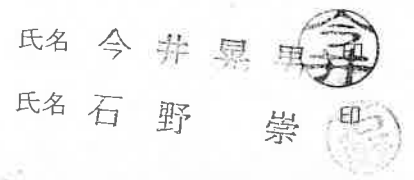 氏名 今井 男 印 今井
氏名 石野 崇 印